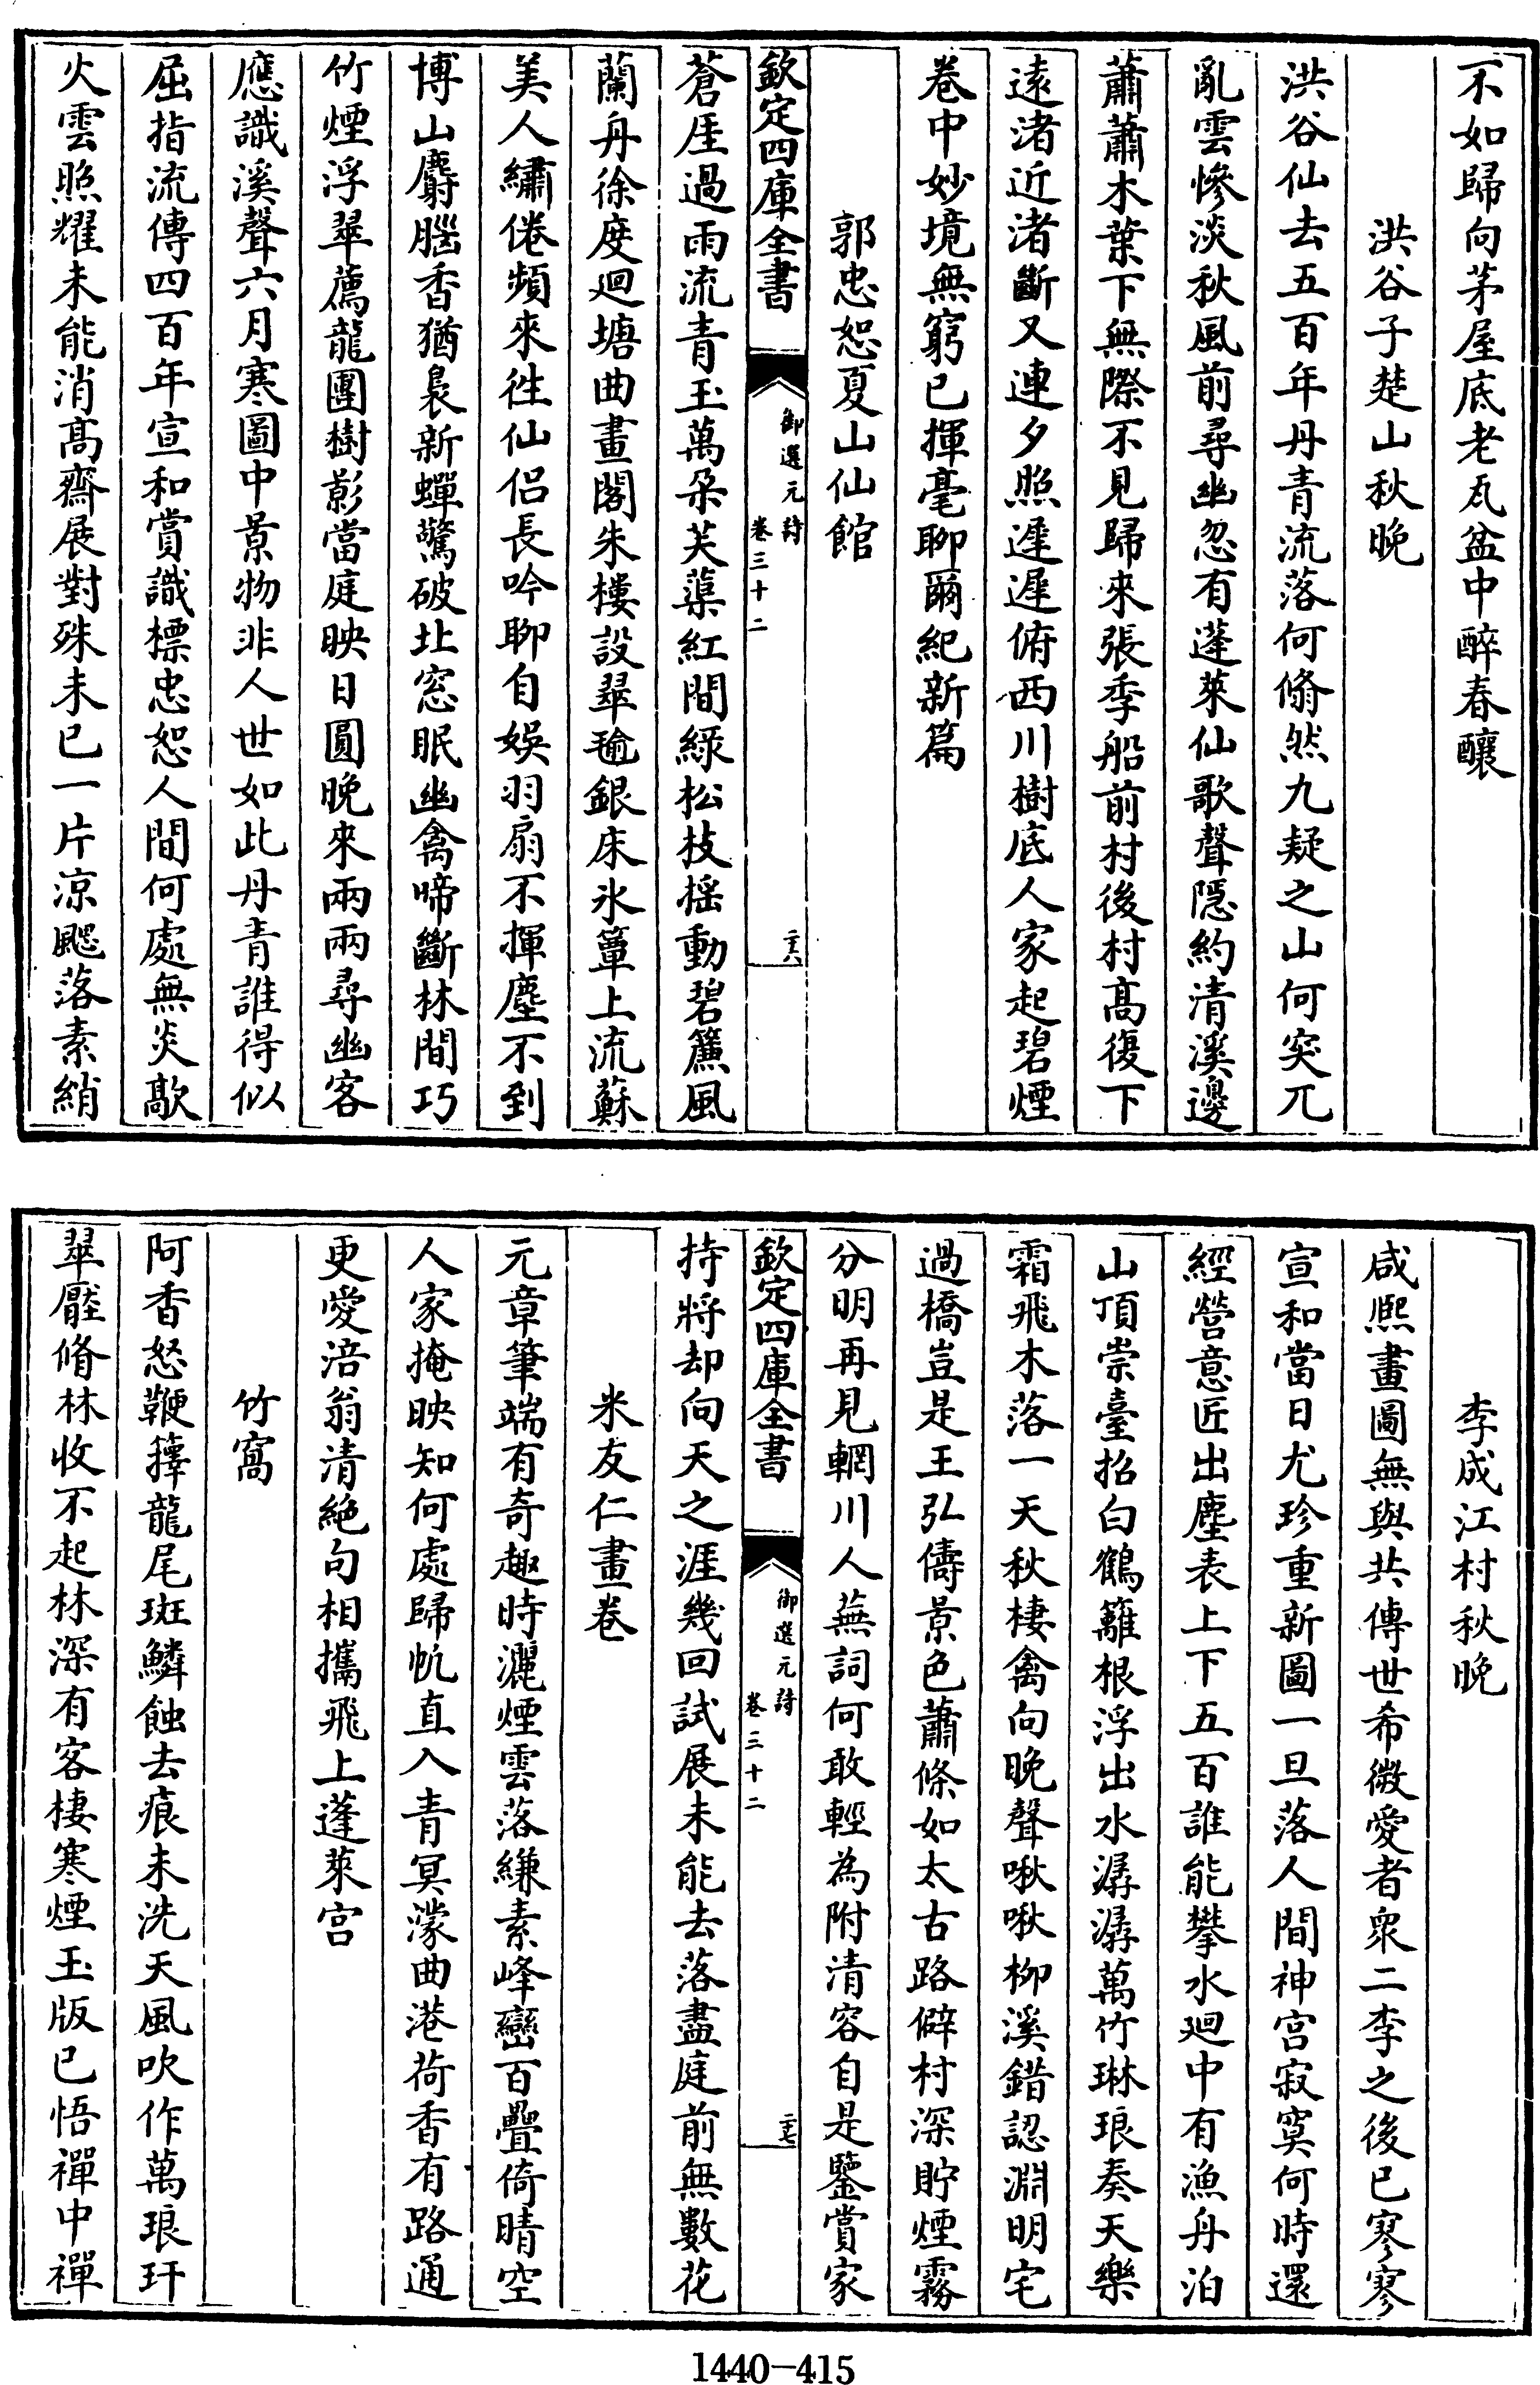 不如歸向茅屋底老瓦盆中醉春釀
洪谷子楚山秋晚
洪谷仙去五百年丹青流落何翛然九疑之山何突兀
亂雲慘淡秋風前尋幽忽有蓬萊仙歌聲隠約清溪邊
蕭蕭木葉下無際不見歸來張季船前村後村髙復下
遠渚近渚斷又連夕照遲遲俯西川樹底人家起碧煙
卷中妙境無窮已揮毫聊爾紀新篇
郭忠恕夏山仙館
欽定四庫全書
御選元詩
卷三十二
二十六
蒼厓過雨流青玉萬朶芙蕖紅間綠松枝揺動碧簾風
蘭舟徐度迴塘曲畫閣朱樓設翠瑜銀床氷簟上流蘇
美人繡倦頻來徃仙侣長吟聊自娛羽扇不揮塵不到
博山麝腦香猶裊新蟬驚破北窓眠幽禽啼斷林間巧
竹煙浮翠薦龍團樹影當庭映日圓晚來兩兩尋幽客
應識溪聲六月寒圖中景物非人世如此丹青誰得似
屈指流傳四百年宣和賞識標忠恕人間何處無炎歊
火雲照耀未能消髙齋展對殊未已一片涼颸落素綃
李成江村秋晚
咸熙畫圖無與共傳世希微愛者衆二李之後已寥寥
宣和當日尤珍重新圖一旦落人間神宫寂寞何時還
經營意匠出塵表上下五百誰能攀水迴中有漁舟泊
山頂崇臺招白鶴籬根浮出水潺潺萬竹琳琅奏天樂
霜飛木落一天秋棲禽向晚聲啾啾柳溪錯認淵明宅
過橋豈是王弘儔景色蕭條如太古路僻村深貯煙霧
分明再見輞川人蕪詞何敢輕為附清容自是鑒賞家
欽定四庫全書
御選元詩
卷三十二
二十七
持將却向天之涯幾回試展未能去落盡庭前無數花
米友仁畫卷
元章筆端有奇趣時灑煙雲落縑素峰巒百疊倚晴空
人家掩映知何處歸帆直入青冥濛曲港荷香有路通
更愛涪翁清絶句相攜飛上蓬萊宫
竹窩
阿香怒鞭籜龍尾斑鱗蝕去痕未洗天風吹作萬琅玕
翠壓脩林收不起林深有客棲寒煙玉版已悟禪中禪
1440-415